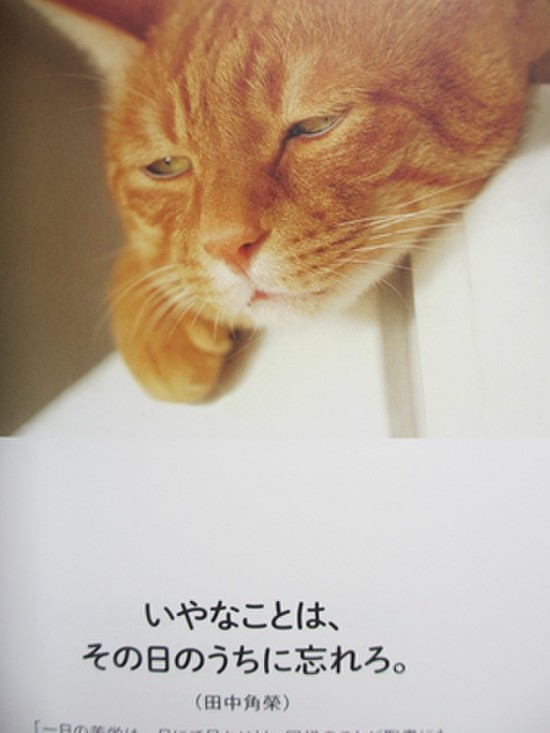 いやなことは、
その日のうちに忘れろ。
（田中角榮）